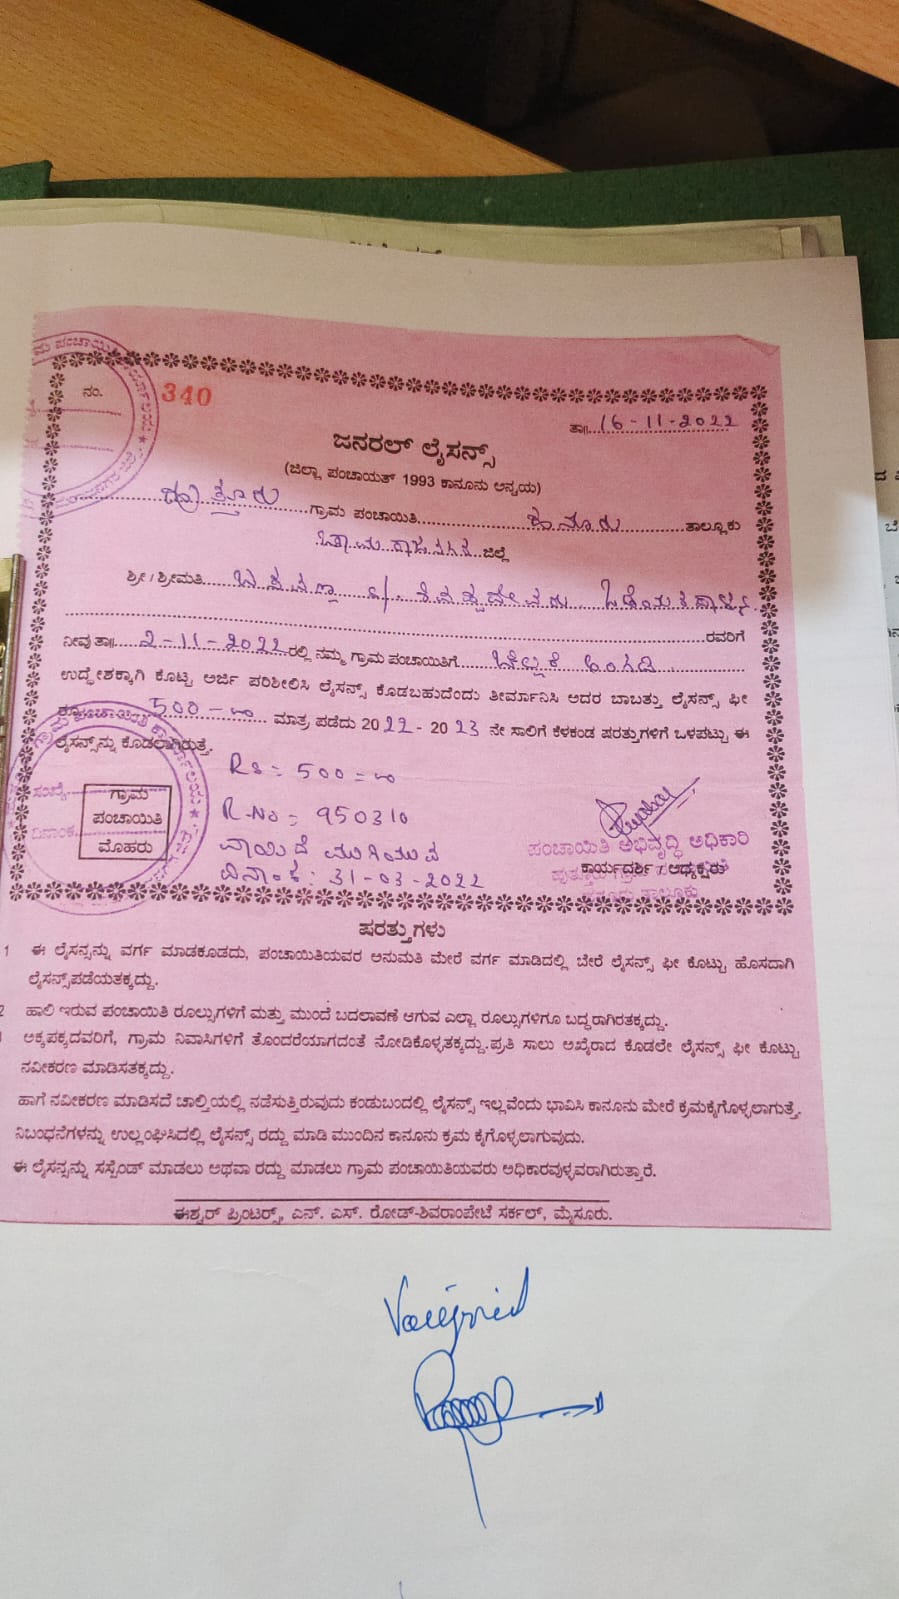 ನಂ. 340
ತಾ॥ 16-11-2022
ಜನರಲ್ ಲೈಸನ್ಸ್
(ಜಿಲ್ಲಾ ಪಂಚಾಯತ್ 1993 ಕಾನೂನು ಅನ್ವಯ)
ಗ್ರಾಮ ಪಂಚಾಯಿತಿ ಹನೂರು ತಾಲ್ಲೂಕು
ಚಾಮರಾಜನಗರ ಜಿಲ್ಲೆ
ಶ್ರೀ / ಶ್ರೀಮತಿ
ರವರಿಗೆ
ನೀವು ತಾ॥ 2-11-2022 ರಲ್ಲಿ ನಮ್ಮ ಗ್ರಾಮ ಪಂಚಾಯಿತಿಗೆ ಅಂಗಡಿ
ಉದ್ದೇಶಕ್ಕಾಗಿ ಕೊಟ್ಟ ಅರ್ಜಿ ಪರಿಶೀಲಿಸಿ ಲೈಸನ್ಸ್ ಕೊಡಬಹುದೆಂದು ತೀರ್ಮಾನಿಸಿ ಅದರ ಬಾಬತ್ತು ಲೈಸನ್ಸ್ ಫೀ
500-00 ಮಾತ್ರ ಪಡೆದು 2022 - 2023 ನೇ ಸಾಲಿಗೆ ಕೆಳಕಂಡ ಷರತ್ತುಗಳಿಗೆ ಒಳಪಟ್ಟು ಈ
ಲೈಸನ್ಸ್‌ನ್ನು ಕೊಡಲಾಗಿರುತ್ತೆ.
Rs = 500=00
R-No = 950310
ವಾಯಿದೆ ಮುಗಿಯುವ
ದಿನಾಂಕ : 31-03-2022
ಸಂಖ್ಯೆ
ದಿನಾಂಕ
ಗ್ರಾಮ
ಪಂಚಾಯಿತಿ
ಮೊಹರು
ಪಂಚಾಯಿತಿ ಅಭಿವೃದ್ಧಿ ಅಧಿಕಾರಿ
ಕಾರ್ಯದರ್ಶಿ / ಅಧ್ಯಕ್ಷರು
ಷರತ್ತುಗಳು
1 ಈ ಲೈಸನ್ಸನ್ನು ವರ್ಗ ಮಾಡಕೂಡದು, ಪಂಚಾಯಿತಿಯವರ ಅನುಮತಿ ಮೇರೆ ವರ್ಗ ಮಾಡಿದಲ್ಲಿ ಬೇರೆ ಲೈಸನ್ಸ್ ಫೀ ಕೊಟ್ಟು ಹೊಸದಾಗಿ
ಲೈಸನ್ಸ್‌ಪಡೆಯತಕ್ಕದ್ದು.
2 ಹಾಲಿ ಇರುವ ಪಂಚಾಯಿತಿ ರೂಲ್ಸುಗಳಿಗೆ ಮತ್ತು ಮುಂದೆ ಬದಲಾವಣೆ ಆಗುವ ಎಲ್ಲಾ ರೂಲ್ಸುಗಳಿಗೂ ಬದ್ದರಾಗಿರತಕ್ಕದ್ದು.
ಅಕ್ಕಪಕ್ಕದವರಿಗೆ, ಗ್ರಾಮ ನಿವಾಸಿಗಳಿಗೆ ತೊಂದರೆಯಾಗದಂತೆ ನೋಡಿಕೊಳ್ಳತಕ್ಕದ್ದು.ಪ್ರತಿ ಸಾಲು ಅಖೈರಾದ ಕೂಡಲೇ ಲೈಸನ್ಸ್ ಫೀ ಕೊಟ್ಟು
ನವೀಕರಣ ಮಾಡಿಸತಕ್ಕದ್ದು.
ಹಾಗೆ ನವೀಕರಣ ಮಾಡಿಸದೆ ಚಾಲ್ತಿಯಲ್ಲಿ ನಡೆಸುತ್ತಿರುವುದು ಕಂಡುಬಂದಲ್ಲಿ ಲೈಸನ್ಸ್ ಇಲ್ಲವೆಂದು ಭಾವಿಸಿ ಕಾನೂನು ಮೇರೆ ಕ್ರಮಕೈಗೊಳ್ಳಲಾಗುತ್ತೆ.
ನಿಬಂಧನೆಗಳನ್ನು ಉಲ್ಲಂಘಿಸಿದಲ್ಲಿ ಲೈಸನ್ಸ್ ರದ್ದು ಮಾಡಿ ಮುಂದಿನ ಕಾನೂನು ಕ್ರಮ ಕೈಗೊಳ್ಳಲಾಗುವುದು.
ಈ ಲೈಸನ್ಸನ್ನು ಸಸ್ಪೆಂಡ್ ಮಾಡಲು ಅಥವಾ ರದ್ದು ಮಾಡಲು ಗ್ರಾಮ ಪಂಚಾಯಿತಿಯವರು ಅಧಿಕಾರವುಳ್ಳವರಾಗಿರುತ್ತಾರೆ.
ಈಶ್ವರ್ ಪ್ರಿಂಟರ್ಸ್, ಎನ್. ಎಸ್. ರೋಡ್-ಶಿವರಾಂಪೇಟೆ ಸರ್ಕಲ್, ಮೈಸೂರು.